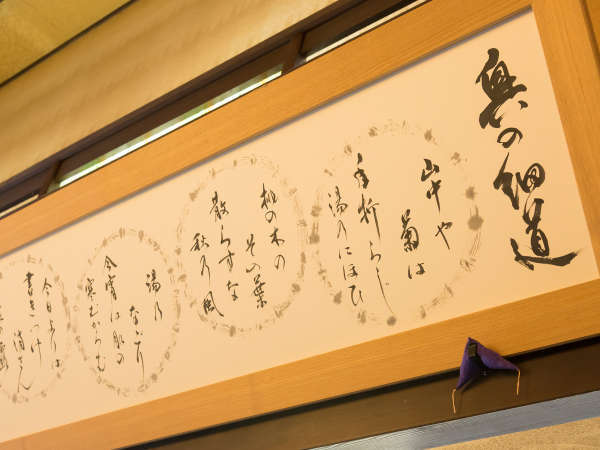 奥の細道
山中や
菊は
手折らじ
湯のにほひ
桃の木の
その葉
散らすな
秋乃風
湯乃
なごり
今宵は肌の
寒むからむ
今日よりは
書きつけ
消さん